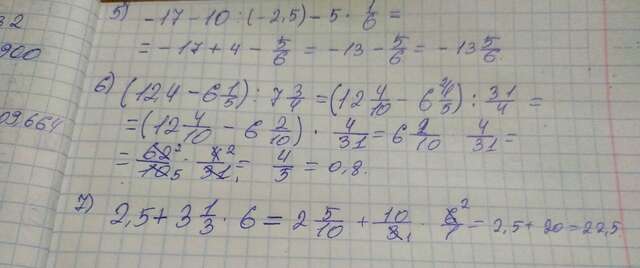 32
900
09,664
5) -17 - 10 : (-2,5) - 5 · 1/6 =
= -17 + 4 - 5/6 = -13 - 5/6 = -13 5/6
6) (12,4 - 6 1/5) : 7 3/4 = (12 4/10 - 6 1/5) : 31/4 =
= (12 4/10 - 6 2/10) · 4/31 = 6 2/10 · 4/31 =
= 62/10 · 4/31 = 4/5 = 0,8.
7) 2,5 + 3 1/3 · 6 = 2 5/10 + 10/3 · 6/1 = 2,5 + 20 = 22,5